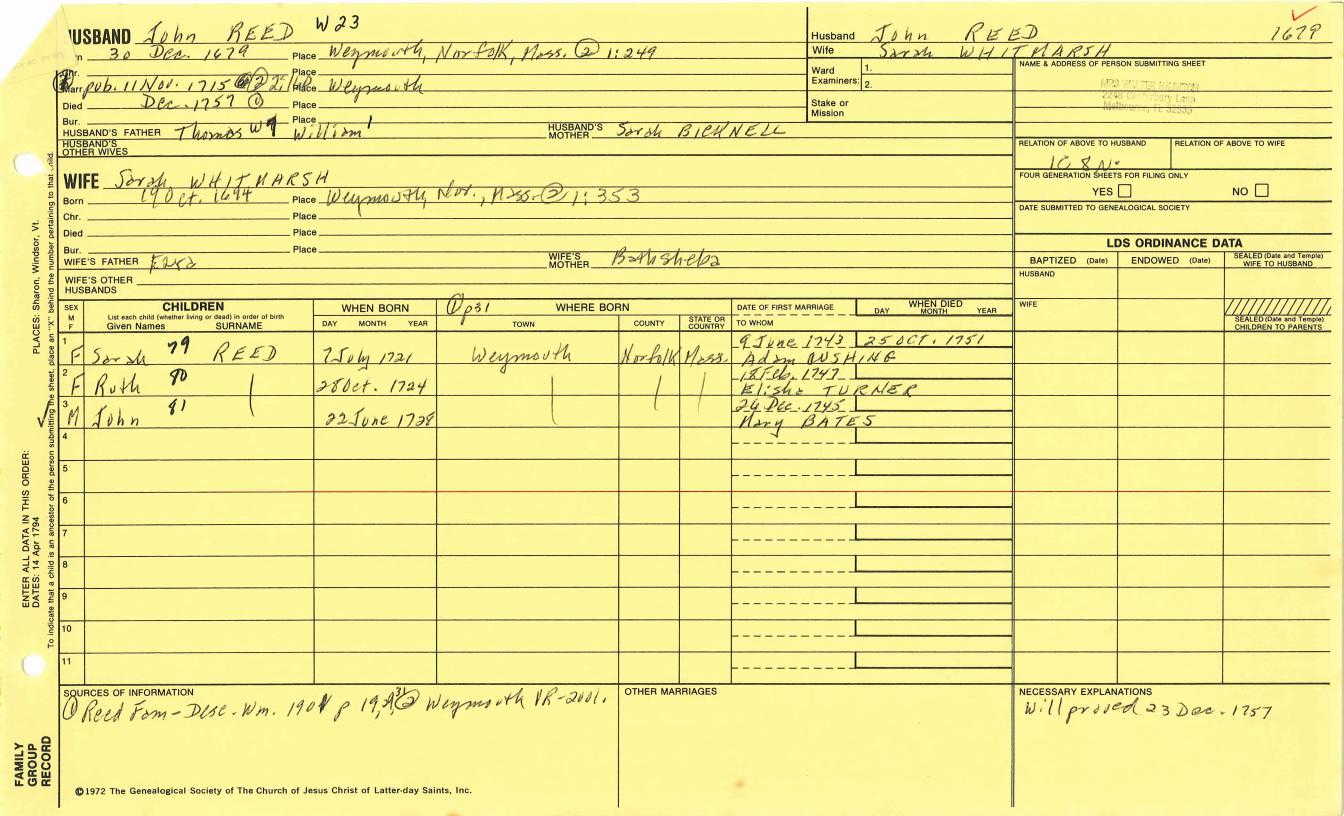 HUSBAND John REED W23
30 Dec. 1679 Place Weymouth, Norfolk, Mass. ② 1:249
Chr. Place
Marr. pub. 11 Nov. 1715 Place Weymouth
Died Dec. 1757 ① Place
Bur. Place
HUSBAND'S FATHER Thomas W9 William1 HUSBAND'S MOTHER Sarah BICKNELL
HUSBAND'S OTHER WIVES
WIFE Sarah WHITMARSH
Born 19 Oct. 1694 Place Weymouth, Nor., Mass. ② 1:353
Chr. Place
Died Place
Bur. Place
WIFE'S FATHER Ezra WIFE'S MOTHER Bathsheba
WIFE'S OTHER HUSBANDS
Husband John REED 1679
Wife Sarah WHITMARSH
Ward Examiners: 1.
2.
Stake or Mission
NAME & ADDRESS OF PERSON SUBMITTING SHEET
RELATION OF ABOVE TO HUSBAND RELATION OF ABOVE TO WIFE
FOUR GENERATION SHEETS FOR FILING ONLY
YES NO
DATE SUBMITTED TO GENEALOGICAL SOCIETY
LDS ORDINANCE DATA
BAPTIZED (Date) ENDOWED (Date) SEALED (Date and Temple) WIFE TO HUSBAND
HUSBAND
WIFE
SEALED (Date and Temple) CHILDREN TO PARENTS
SEX M F
CHILDREN
List each child (whether living or dead) in order of birth
Given Names SURNAME
WHEN BORN
DAY MONTH YEAR
① p31 WHERE BORN
TOWN COUNTY STATE OR COUNTRY
DATE OF FIRST MARRIAGE
TO WHOM
WHEN DIED
DAY MONTH YEAR
1 F Sarah 79 REED 7 July 1721 Weymouth Norfolk Mass. 9 June 1743 25 OCT. 1751
Adam CUSHING
2 F Ruth 80 28 Oct. 1724 18 Feb. 1747
Elisha TURNER
3 M John 81 22 June 1728 26 Dec. 1745
Mary BATES
4
5
6
7
8
9
10
11
SOURCES OF INFORMATION
① Reed Fam-Desc. Wm. 1901 p 19, 31 ② Weymouth VR-2001.
OTHER MARRIAGES
NECESSARY EXPLANATIONS
Will proved 23 Dec. 1757
©1972 The Genealogical Society of The Church of Jesus Christ of Latter-day Saints, Inc.
FAMILY GROUP RECORD
ENTER ALL DATA IN THIS ORDER:
DATES: 14 Apr 1794
PLACES: Sharon, Windsor, Vt.
To indicate that a child is an ancestor of the person submitting the sheet, place an "X" behind the number pertaining to that child.